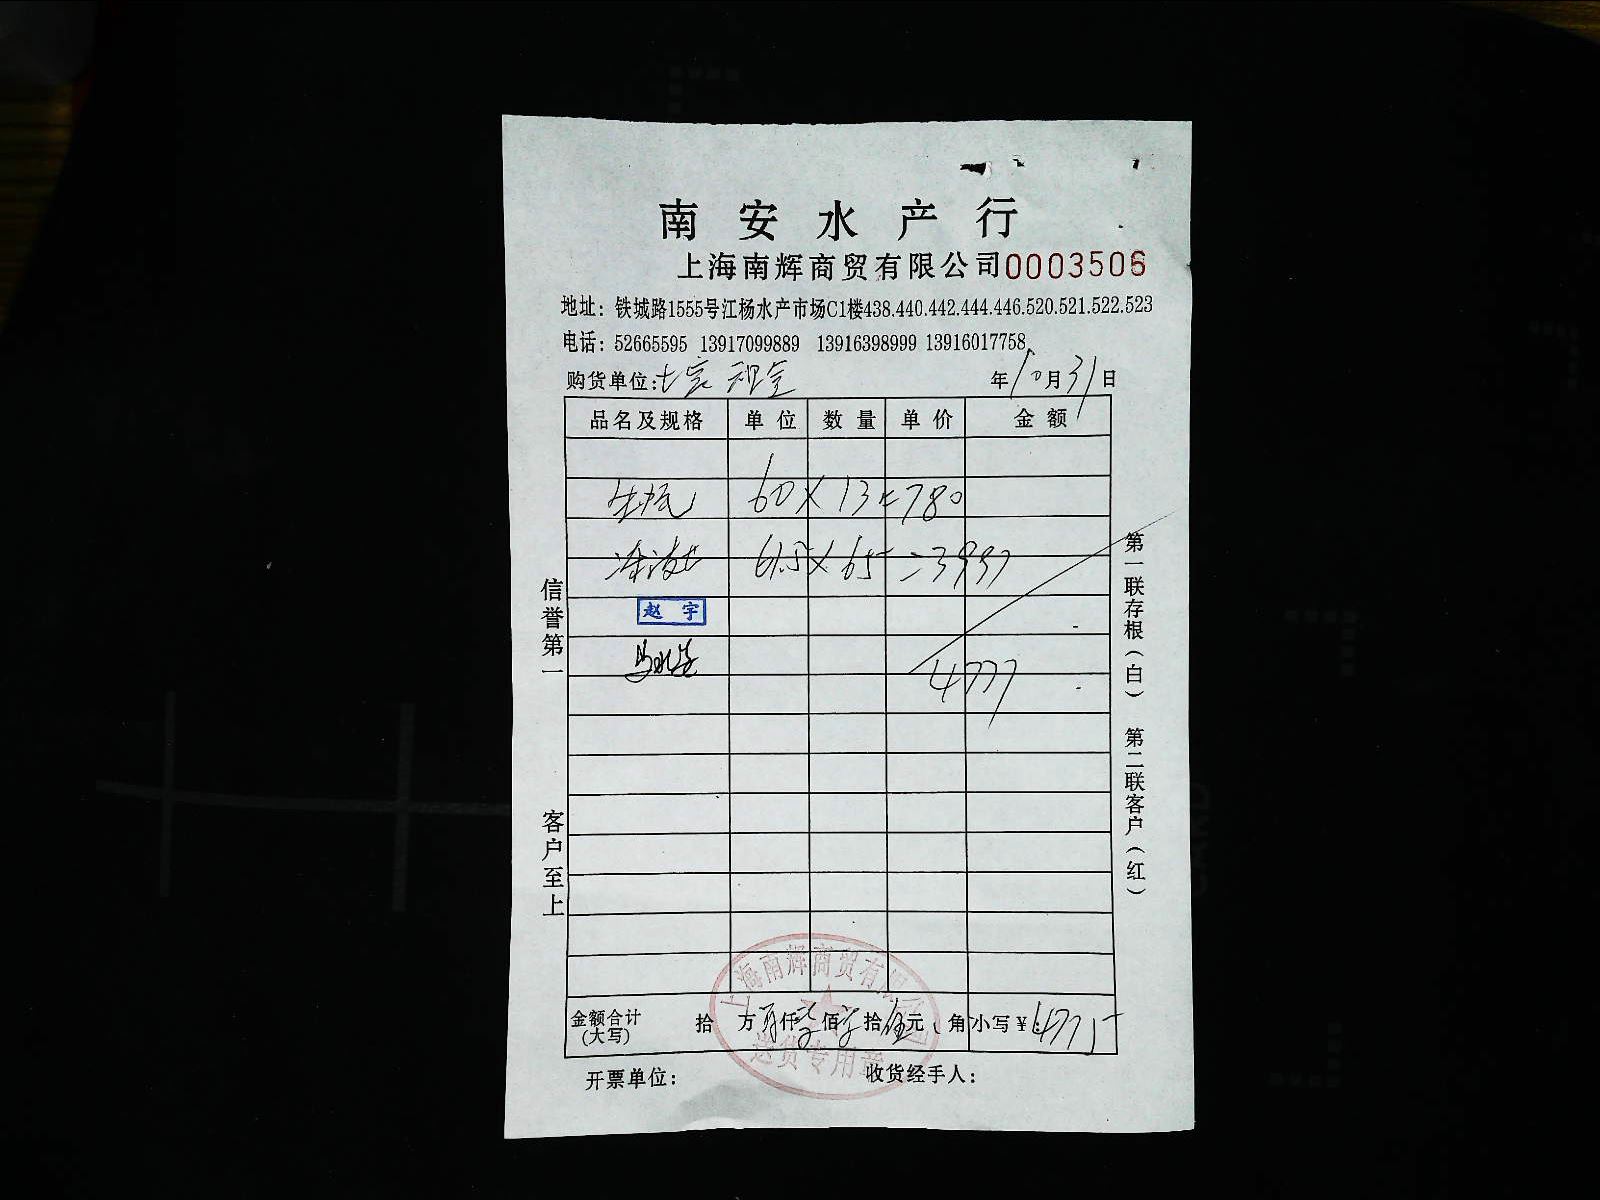 南安水产行
上海南辉商贸有限公司0003506
地址：铁城路1555号江杨水产市场C1楼438.440.442.444.446.520.521.522.523
电话：52665595 13917099889 13916398999 13916017758
购货单位： 年10月31日
品名及规格 单位 数量 单价 金额
60×13=780
61.5×65=3997
赵宇
4777
信誉第一 客户至上
第一联存根（白） 第二联客户（红）
金额合计（大写） 拾 万 仟 佰 拾 元 角 小写¥：4775
上海南辉商贸有限公司
送货专用章
开票单位： 收货经手人：